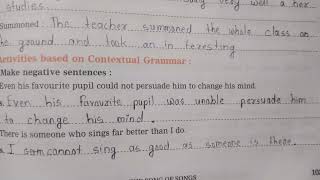 studies. very well a her
Summoned : The teacher summoned the whole class on
the ground and took an in teresting
Activities based on Contextual Grammar :
Make negative sentences :
Even his favourite pupil could not persuade him to change his mind
a. Even his favourite pupil was unable persuade him
to change his mind.
There is someone who sings far better than I do
a. I som cannot sing as good as someone is there.
SONG OF SONGS